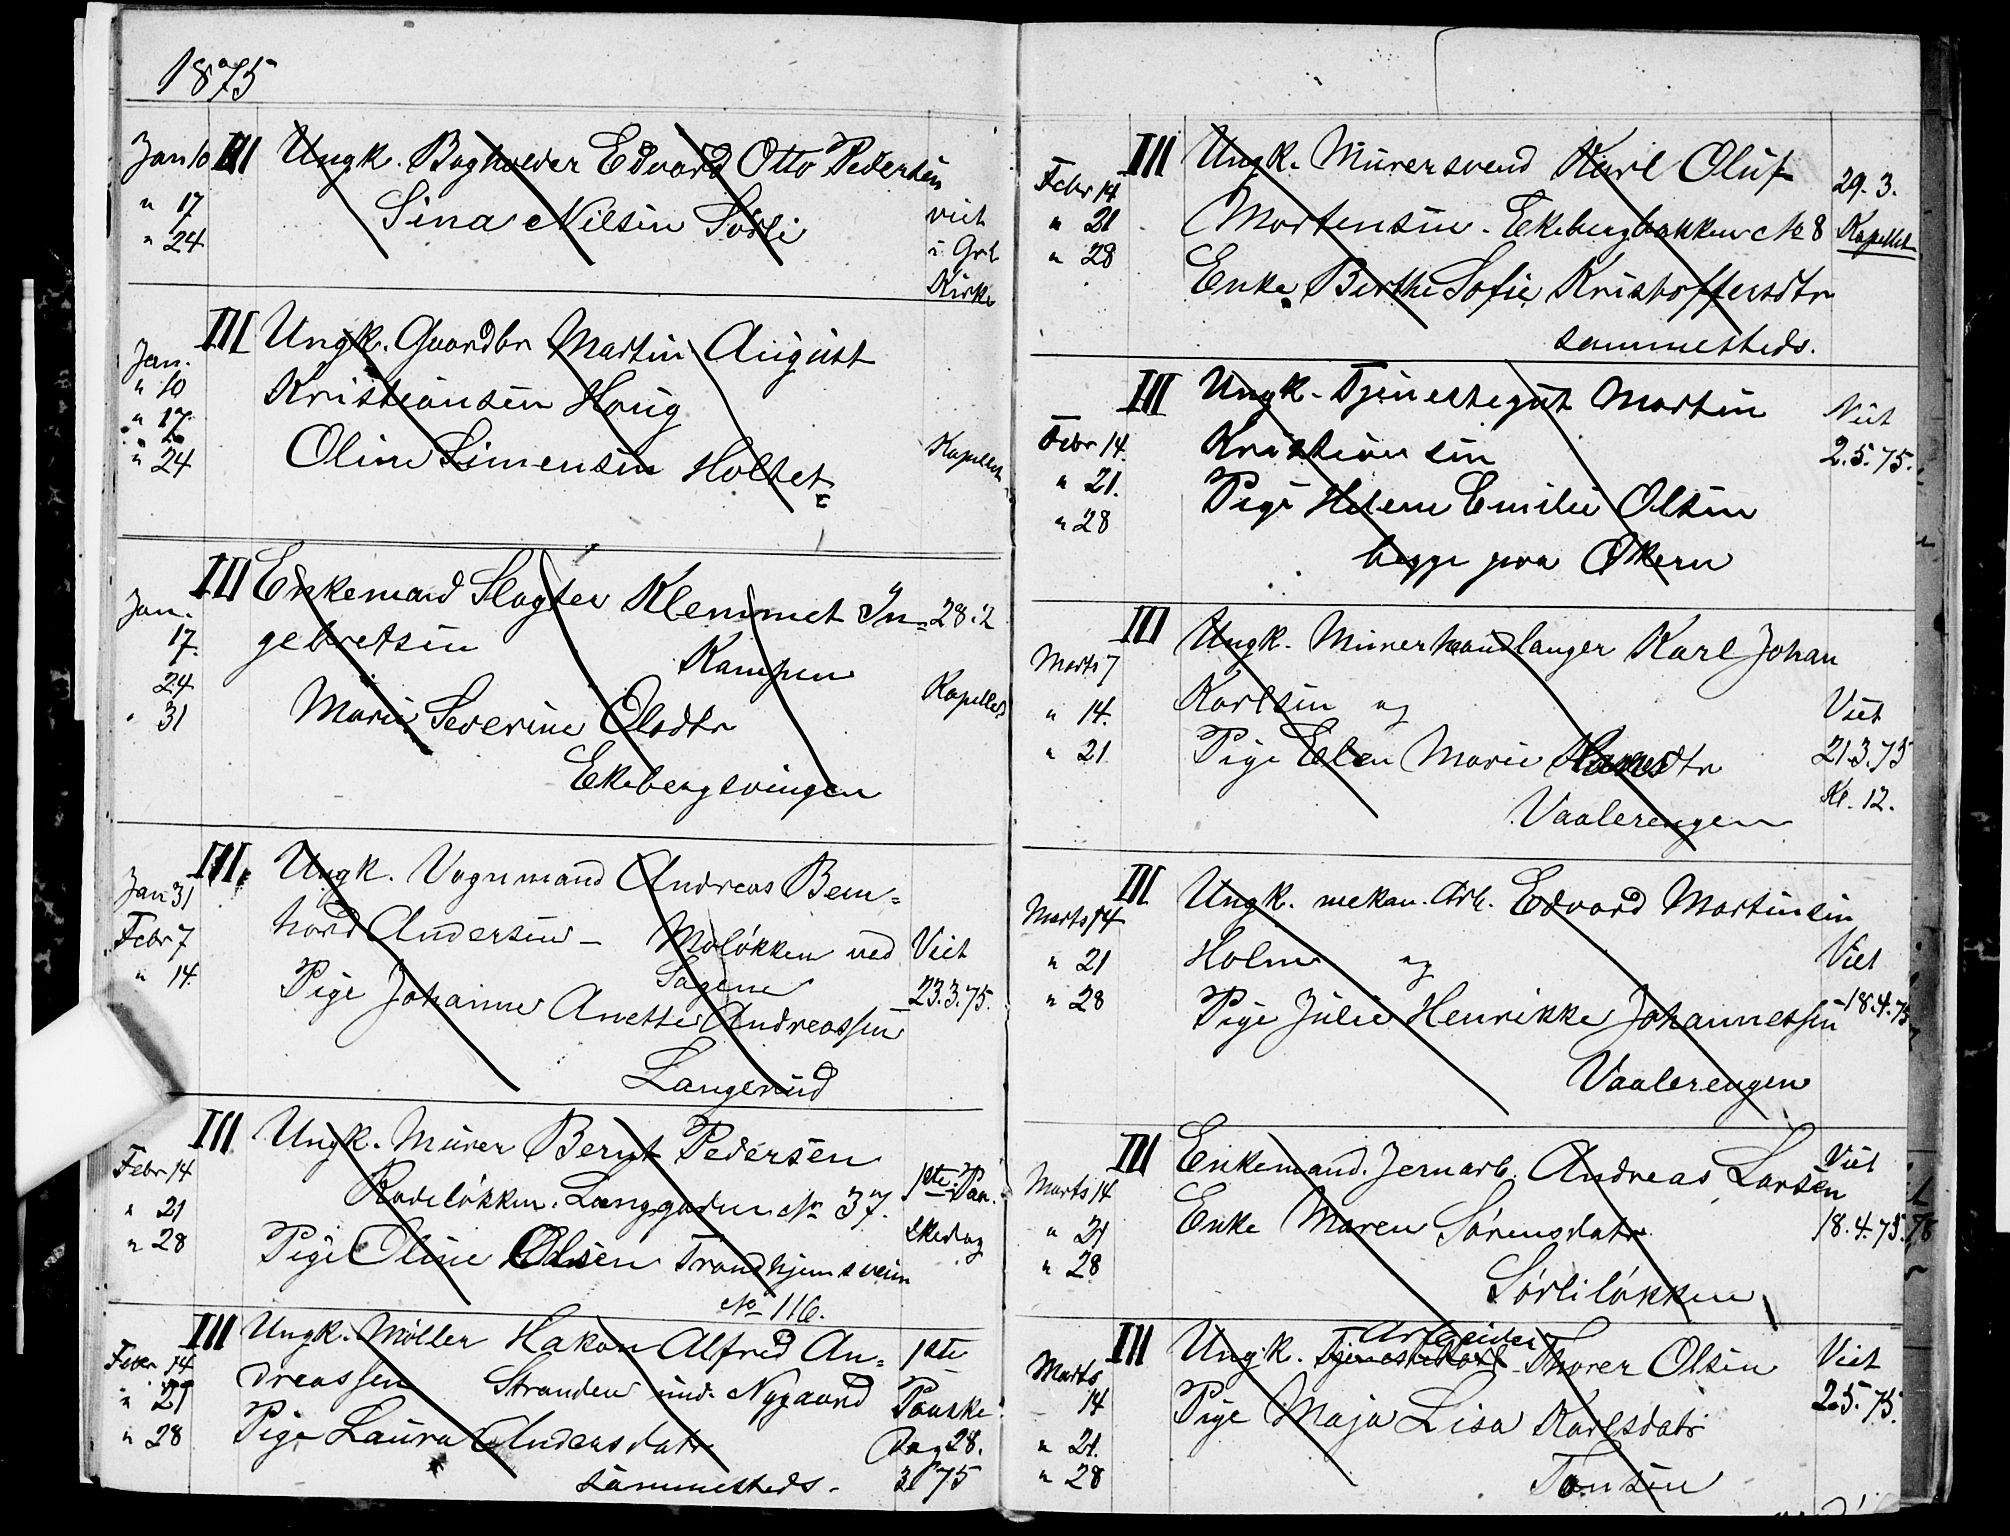 1875
Jan 10 III Ungk. Bogholder Edvard Otto Pedersen
" 17 Sina Nilsen Sørli viet
" 24 i Grl
Kirke
III Ungk. Gaardbr Martin August
Jan.
" 10 Kristiansen Houg
" 17
" 24 Oline Simensen Holtet Kapellet
III Enkemand Slagter Klemmet In= 28.2
Jan.
17. gebretsen Kampen
24 Kapellet
31 Marie Severine Olsdtr
Ekebergsvingen
III. Ungk. Vognmand Andreas Bern=
Jan 31
Febr 7 hard Andersen - Moløkken ved Viet
" 14. Sagene
Pige Johanne Anette Andreassen 23.3.75.
Langerud
III Ungk. Murer Bernt Pedersen
Febr 14 Rodeløkken. Langgaden No 37. 1ste Paa.
" 21 skedag
" 28 Pige Oline Olsen Trondhjemsveien
No 116.
III Ungk. Møller Hakon Alfred An= 1ste
Febr 14
" 21 dreassen Stranden und. Nygaard Paaske
" 28 Pige Laura Andersdatr Dag 28.
sammesteds. 3 75
III Ungk. Murersvend Karl Oluf 29.3.
Febr 14
" 21 Mortensen. Ekebergbakken No 8 Kapellet
" 28 Enke Berthe Sofie Kristoffersdtr
sammesteds.
III Ungk. Tjenestegut Martin Viet
Febr 14. Kristiansen 2.5.75.
" 21. Pige Helene Emilie Olsen
" 28
begge paa Økern
III Ungk. Murerhandlanger Karl Johan
Marts 7
" 14. Karlsen og Viet
" 21 Pige Elen Marie Hansdtr 21.3.75
Vaalerengen Kl. 12.
III Ungk. mekan. Arb. Edvard Martinsen
Marts 14
" 21 Holm og Viet
" 28 Pige Julie Henrikke Johannessen 18.4.75
Vaalerengen
III Enkemand. Jernarb. Andreas Larsen Viet
Marts 14
" 21 Enke Maren Sørensdatr 18.4.75.
" 28
Sørliløkken
Arbeider
III Ungk. Tjenestekarl Thorer Olsen Viet
Marts
14 Pige Maja Lisa Karlsdatr 2.5.75.
" 21.
" 28 Tonsen